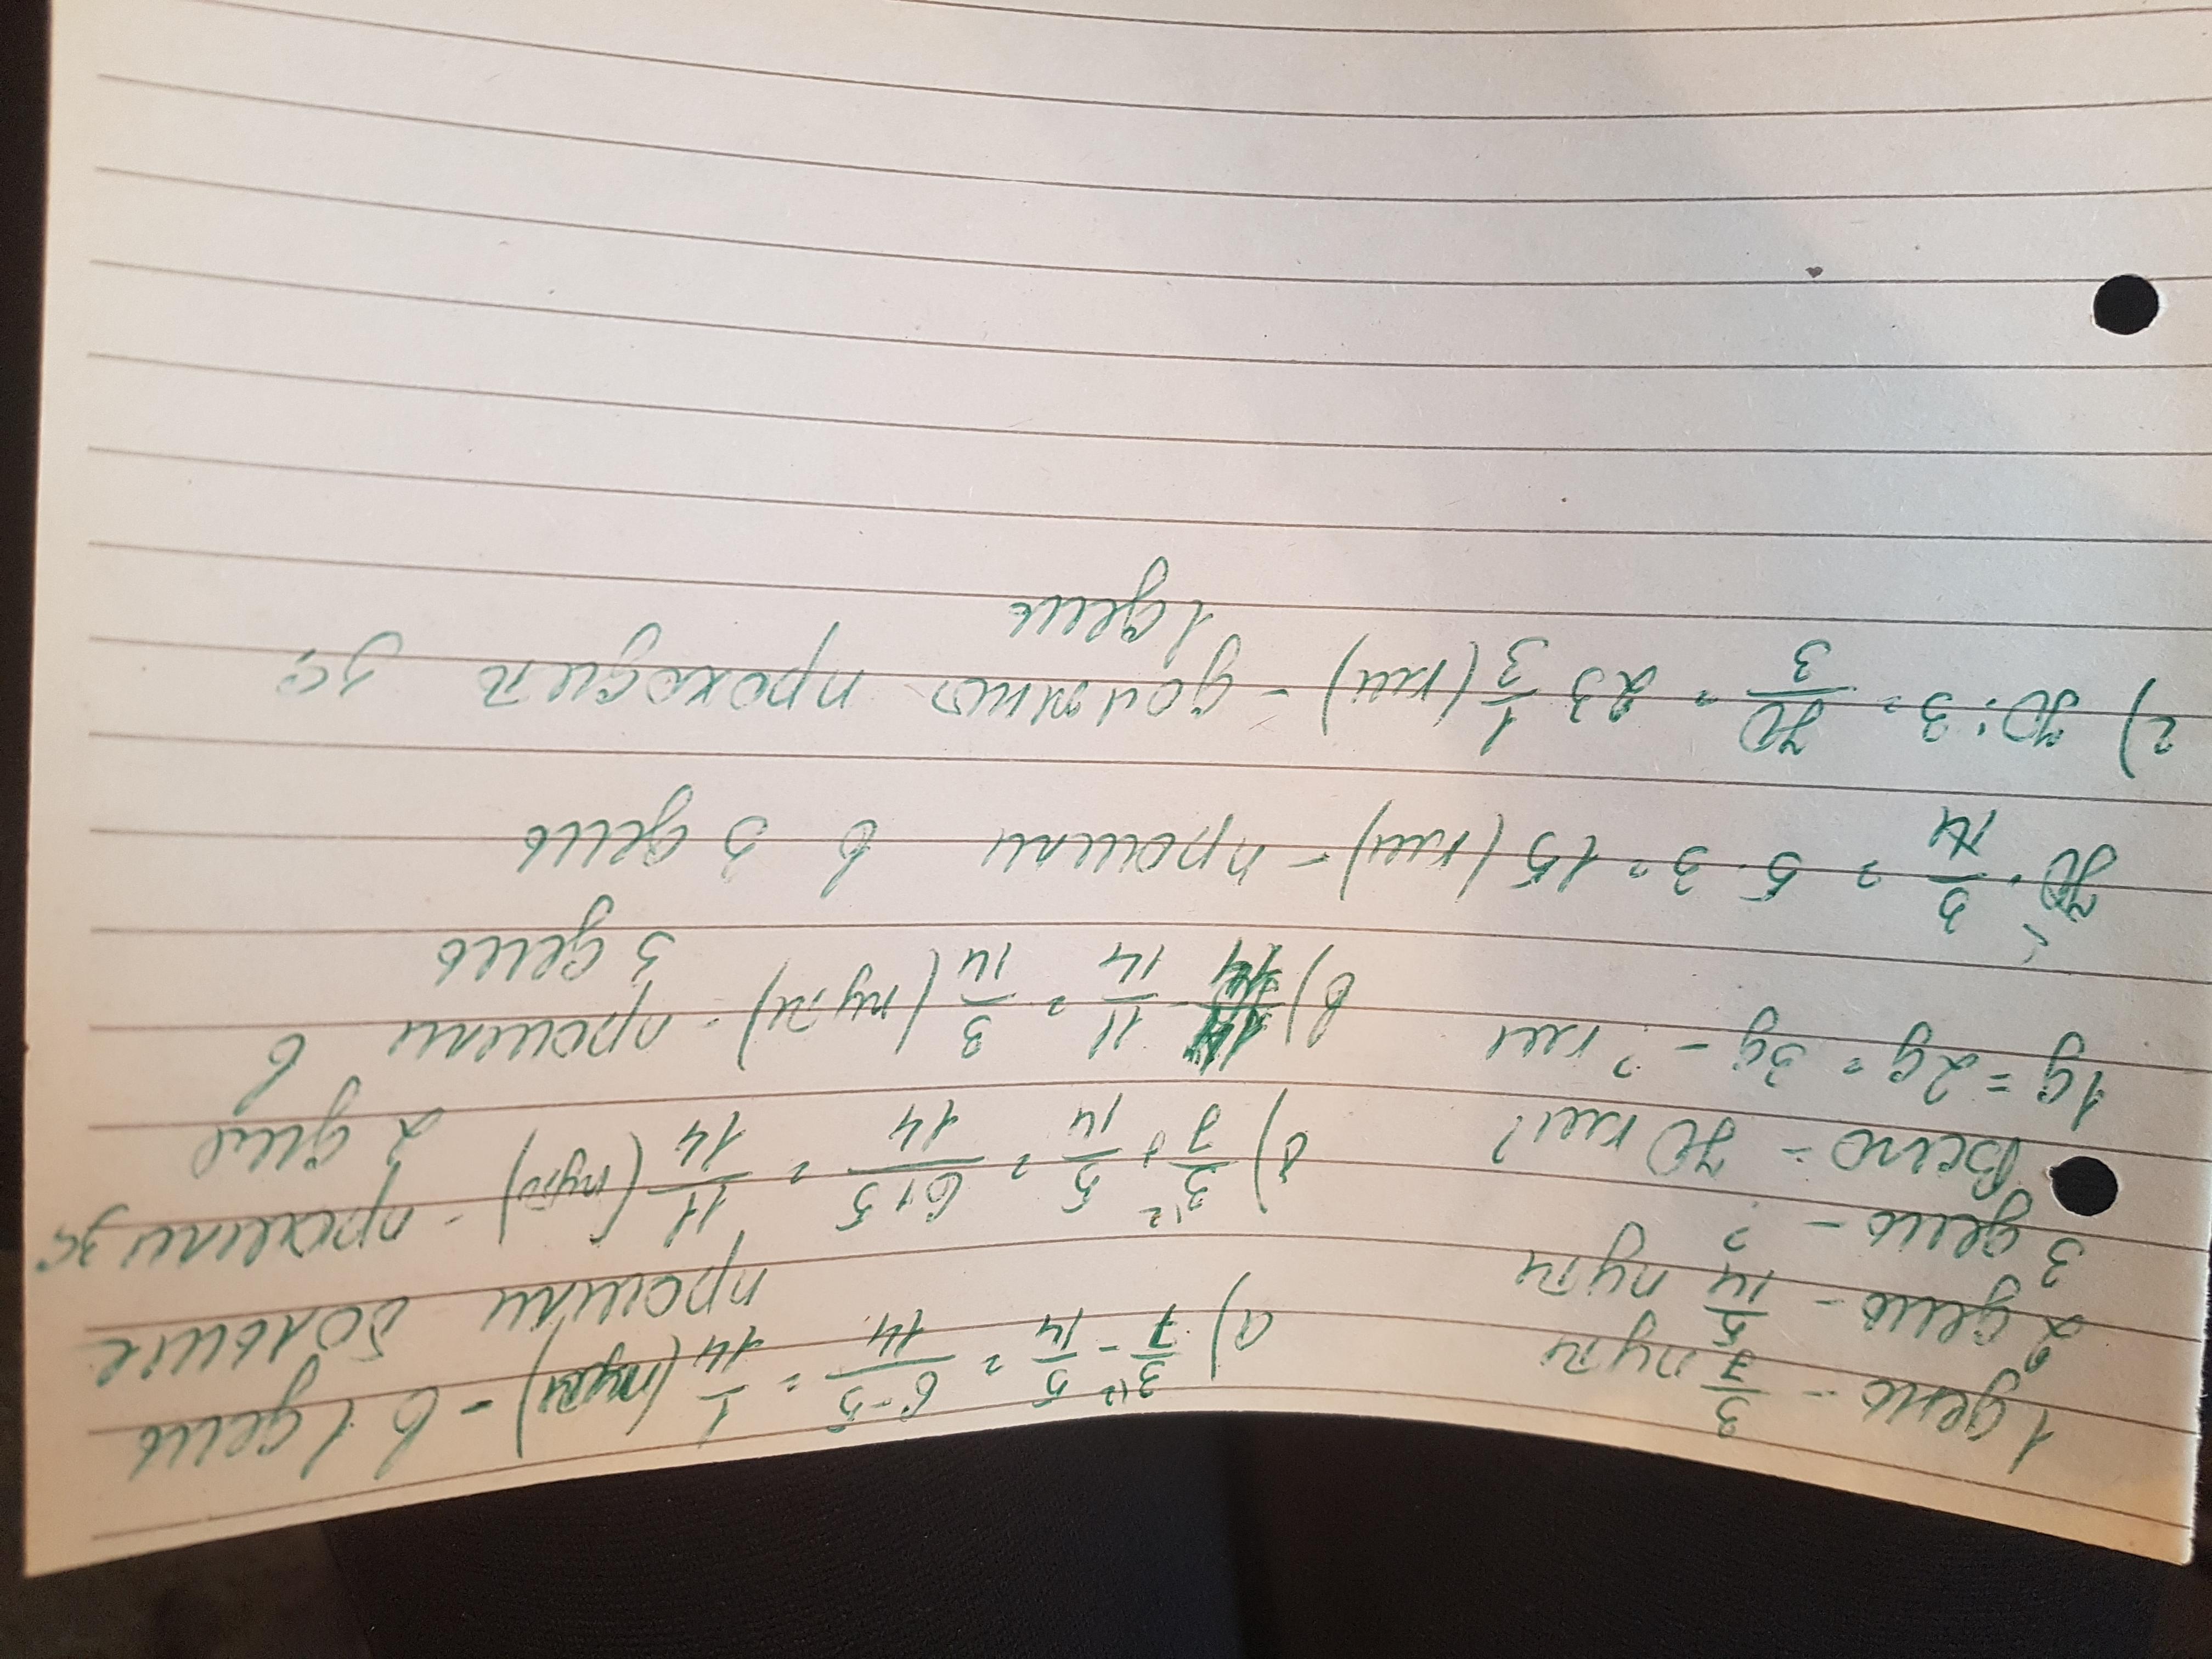 1 день - 3/7 пути
2 день - 5/14 пути
3 день - ?
Всего - 70 км?
1д = 2д = 3д - ? км
а) 3/7 - 5/14 = 6-5/14 = 1/14 (пути) - в 1 день
прошли больше
б) 3/7 + 5/14 = 6+5/14 = 11/14 (пути) - прошли за
2 дня
в) 14/14 - 11/14 = 3/14 (пути) - прошли в
3 день
70 · 3/14 = 5 · 3 = 15 (км) - прошли в 3 день
г) 70 : 3 = 70/3 = 23 1/3 (км) - должны проходить за
1 день